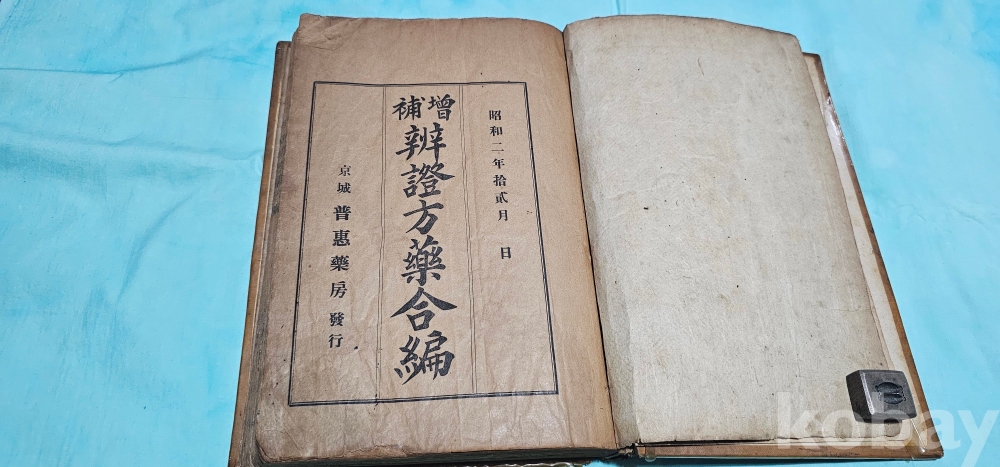 昭和二年拾貳月 日
增補
辨證方藥合編
京城 普惠藥房 發行
kobay